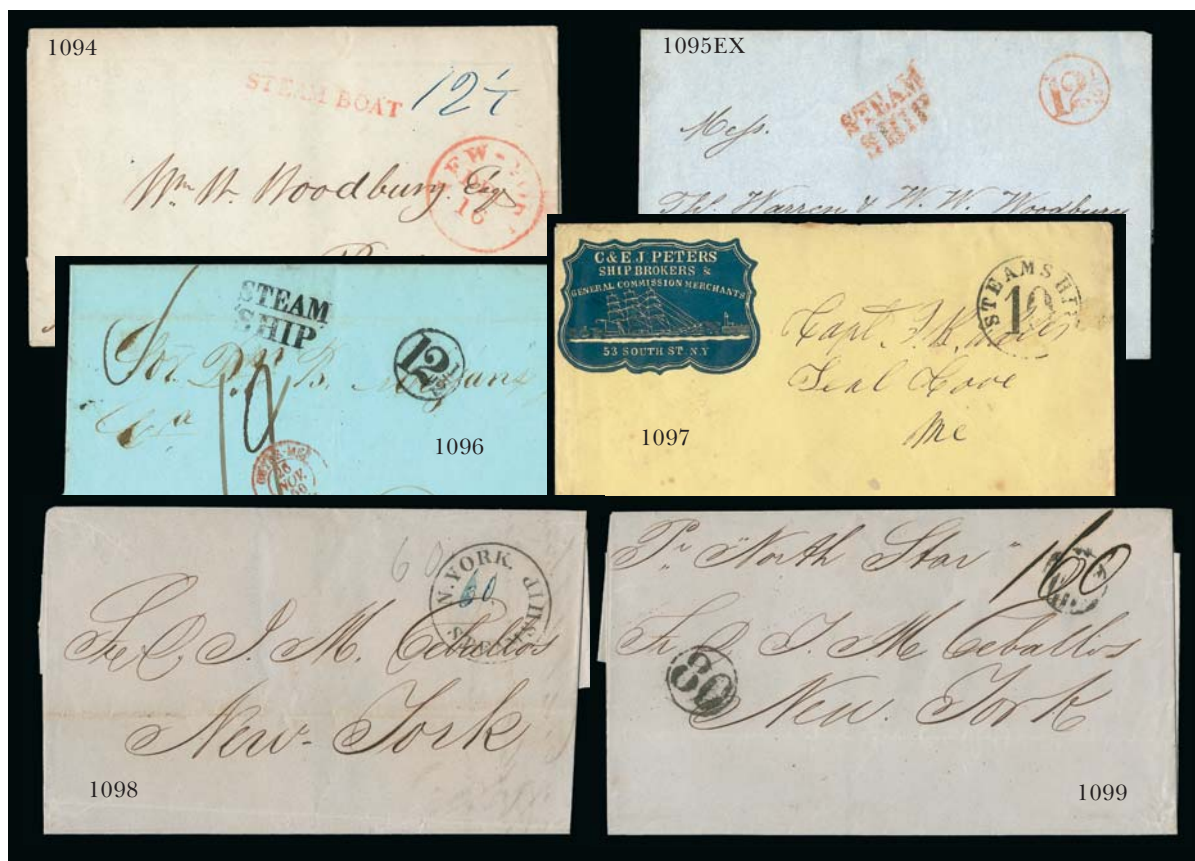 1094
STEAM BOAT
12½
NEW-YORK
16
Wm W. Woodbury Esq
1095EX
STEAM
SHIP
12½
Mess.
Thos. Warren & W. W. Woodbury
STEAM
SHIP
12½
1096
OUTRE-MER
26
NOV.
C & E. J. PETERS
SHIP BROKERS &
GENERAL COMMISSION MERCHANTS
53 SOUTH ST. N.Y
STEAMSHIP
10
Capt
Seal Cove
Me
1097
60
N. YORK.
60
STEAMSHIP
J. M. Ceballos
New-York
1098
Pr "North Star"
160
J. M Ceballos
80
New. York
1099